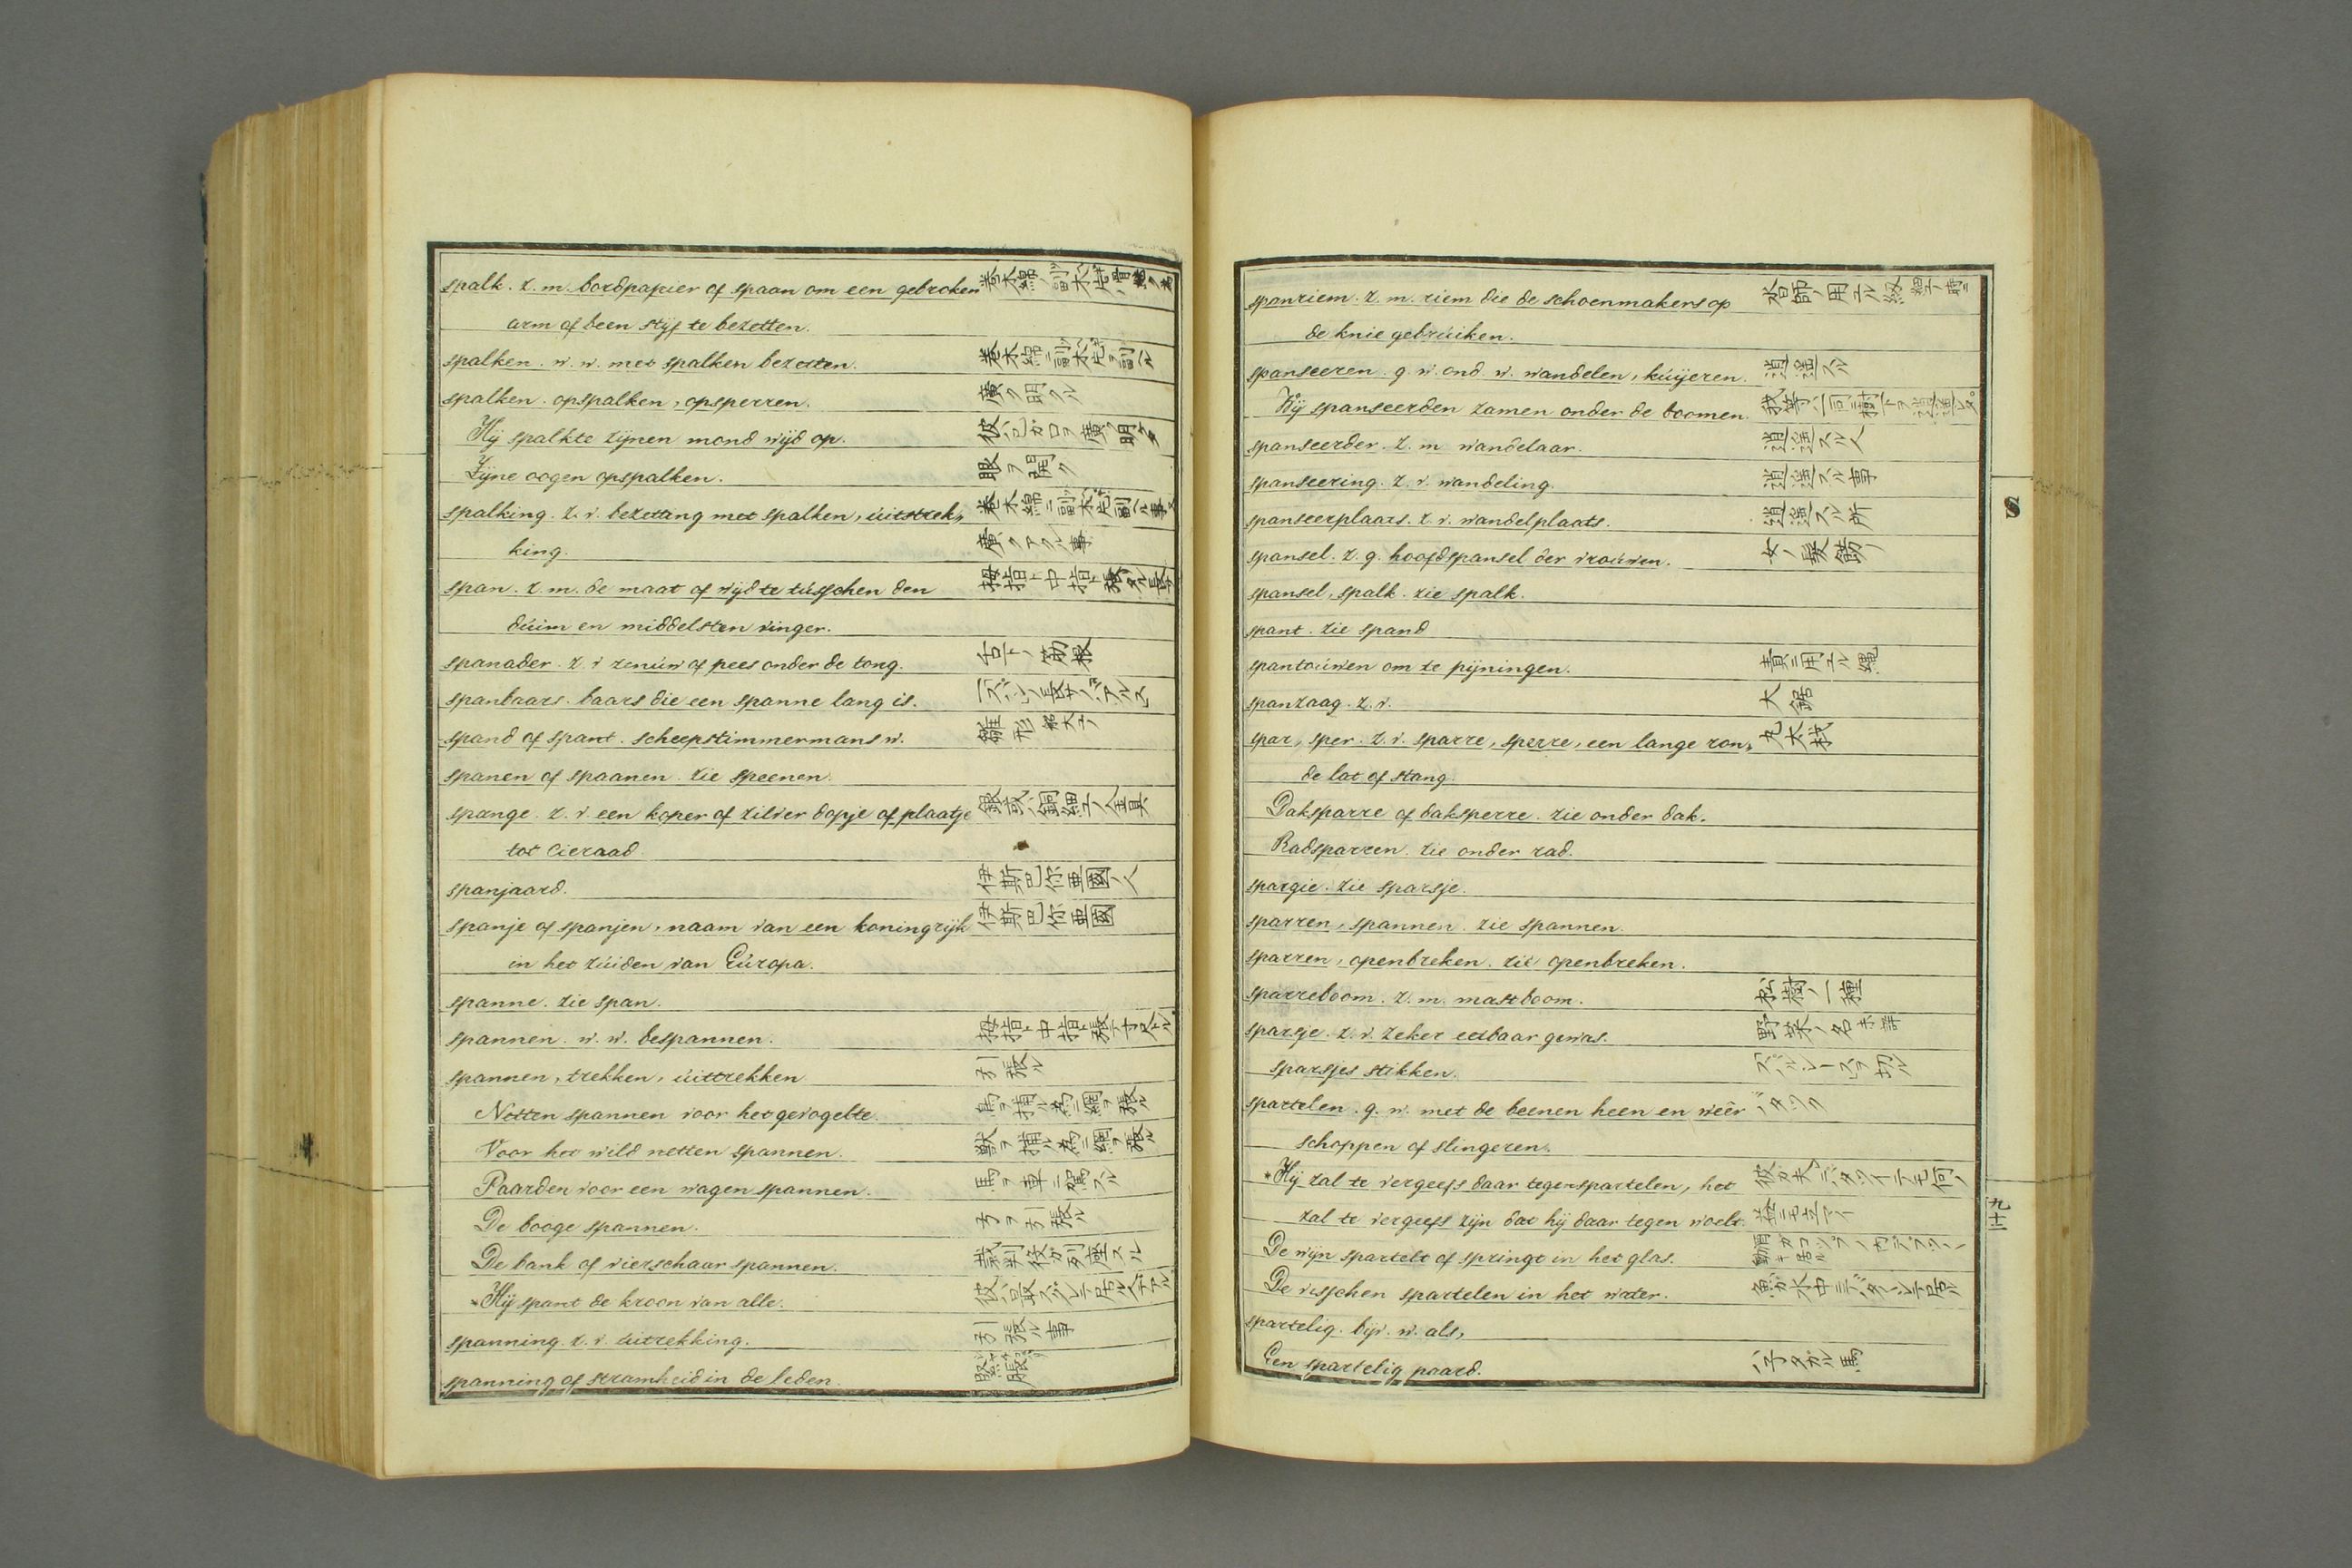 spalk. z. m. bordpapier of spaan om een gebroken
arm of been stijf te bezetten.
spalken. w. w. met spalken bezetten. 巻木綿ニ副木ヲ副ル
spalken. opspalken, opsperren. 廣ク明クル
Hij spalkte zijnen mond wijd op. 彼ハ己カ口ヲ廣ク明タ
Zijne oogen opspalken. 眼ヲ開ク
spalking. z. v. bezetting met spalken, uitstrek,
king. 廣クアクル事
span. z. m. de maat of wijdte tússchen den 拇指ト中指ト張タル長サ
dúim en middelsten vinger.
spanader. z. v zenúw of pees onder de tong. 舌下ノ筋根
spanbaars. baars die een spanne lang is.
spand of spant. scheepstimmermans w. 雛形
spanen of spaanen. zie speenen.
spange. z. v. een koper of zilver dopje of plaatje 銀或ハ銅細工ノ金具
tot cieraad.
spanjaard. 伊斯巴你亜國ノ人
spanje of spanjen, naam van een koningrijk 伊斯巴你亜國
in het zúiden van Eúropa.
spanne. zie span.
spannen. w. w. bespannen. 拇指ト中指ト張テ寸尺トル
spannen, trekken, úittrekken 引張ル
Netten spannen voor het gevogelte. 鳥ヲ捕ル為ニ網ヲ張ル
Voor het wild netten spannen. 獣ヲ捕ル為ニ網ヲ張ル
Paarden voor een wagen spannen. 馬ヲ車ニ駕スル
De booge spannen. 弓ヲ引張ル
De bank of vierschaar spannen. 裁判役ガ列座スル
*Hij spant de kroon van alle.
spanning. z. v. úitrekking. 引張ル事
spanning of stramheid in de leden.
spanriem. z. m. riem die de schoenmakers op
de knie gebrúiken.
spanseeren. g. w. ond w. wandelen, kúijeren. 逍遥スル
Wij spanseerden zamen onder de boomen.
spanseerder. z. m. wandelaar. 逍遥スル人
spanseering. z. v. wandeling. 逍遥スル事
spanseerplaats. z. v. wandelplaats. 逍遥スル所
spansel. z. g. hoofdspansel der vroúwen. 女ノ髪飾リ
spansel, spalk. zie spalk.
spant. zie spand
spantoúwen om te pijningen. 責ニ用ル縄
spanzaag. z. v. 大鋸
spar, sper. z. v. sparre, sperre, een lange ron, 丸太杙
de lat of stang.
Daksparre of daksperre. zie onder dak.
Radsparren. zie onder rad.
spargie. zie sparsje.
sparren, spannen. zie spannen.
sparren, openbreken. zie openbreken.
sparreboom. z. m. mastboom. 松樹ノ一種
sparsje. z. v. zeker eetbaar gewas. 野菜ノ名
sparsjes stikken.
spartelen. g. w. met de beenen heen en wêêr バタツク
schoppen of slingeren.
*Hij zal te vergeefs daar tegenspartelen, het
zal te vergeefs zijn dat hij daar tegen woelt. 益ニモ立マイ
De wijn spartelt of springt in het glas.
De visschen spartelen in het water.
spartelig. bijv. w. als,
Een spartelig paard. ハ子タガル馬
S